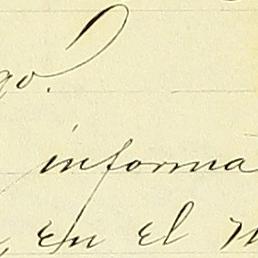 go.
informa
, en el